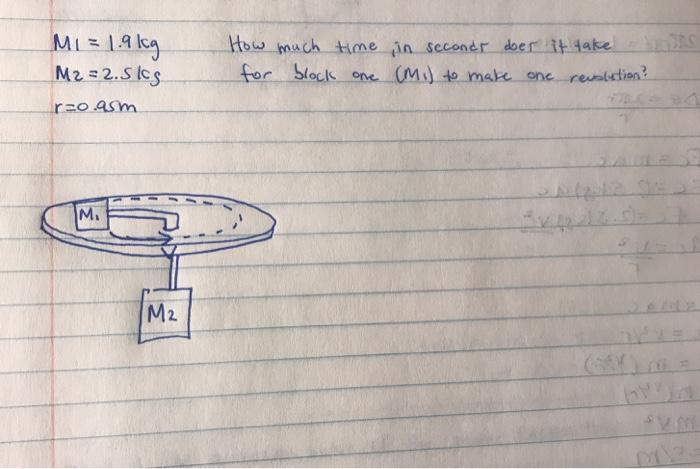 M1 = 1.9 kg
M2 = 2.5 kg
r=0.95m
How much time, in seconds does it take
for block one (M1) to make one revolution?
M1
M2